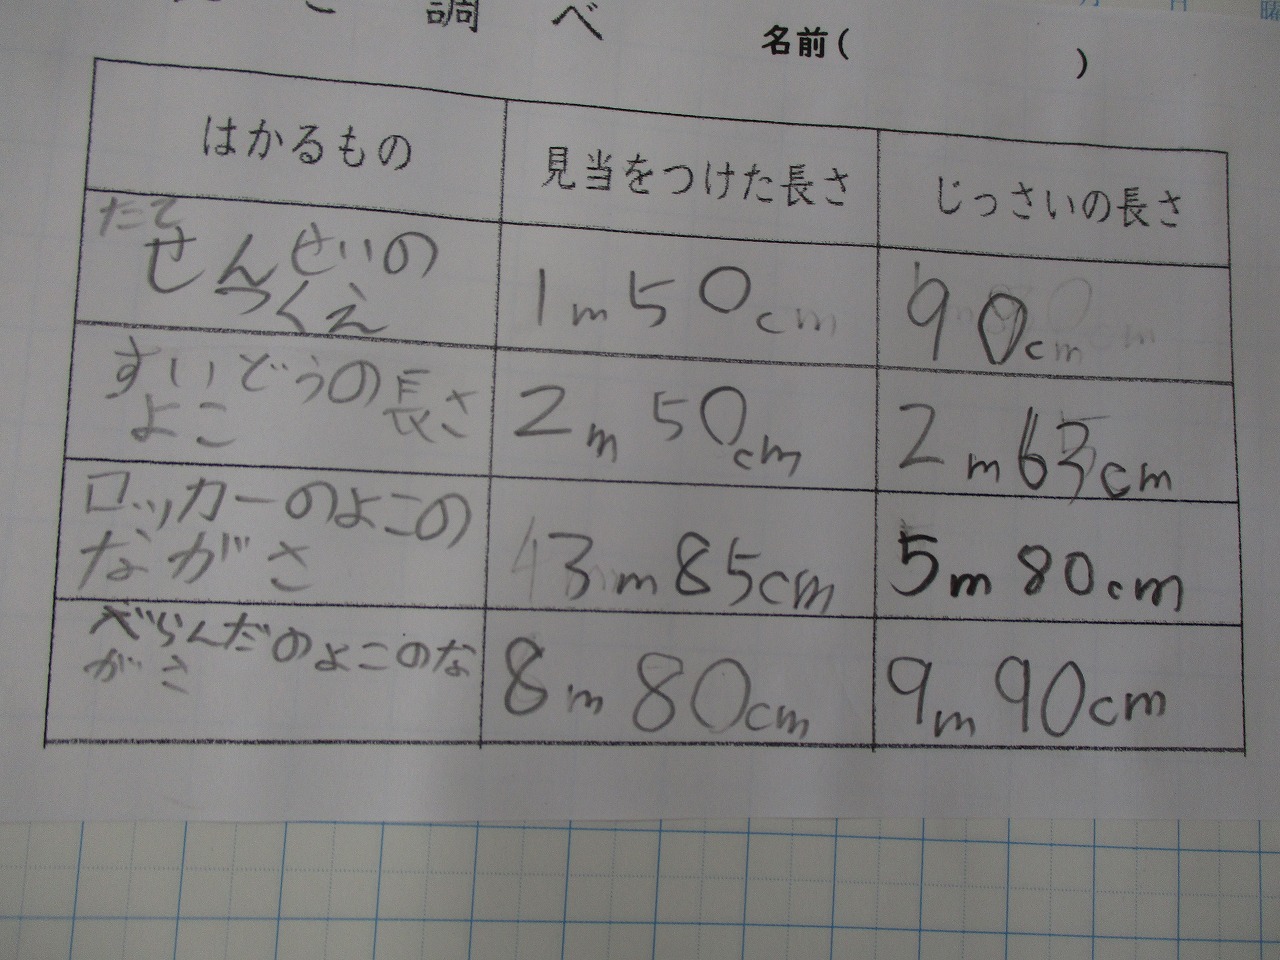 さ調べ
名前(　　　)
はかるもの　見当をつけた長さ　じっさいの長さ
たて
せんせいの
つくえ
1m50cm　90cm
すいどうの長さ
よこ
2m50cm　2m63cm
ロッカーのよこの
ながさ
3m85cm　5m80cm
べらんだのよこのな
がさ
8m80cm　9m90cm